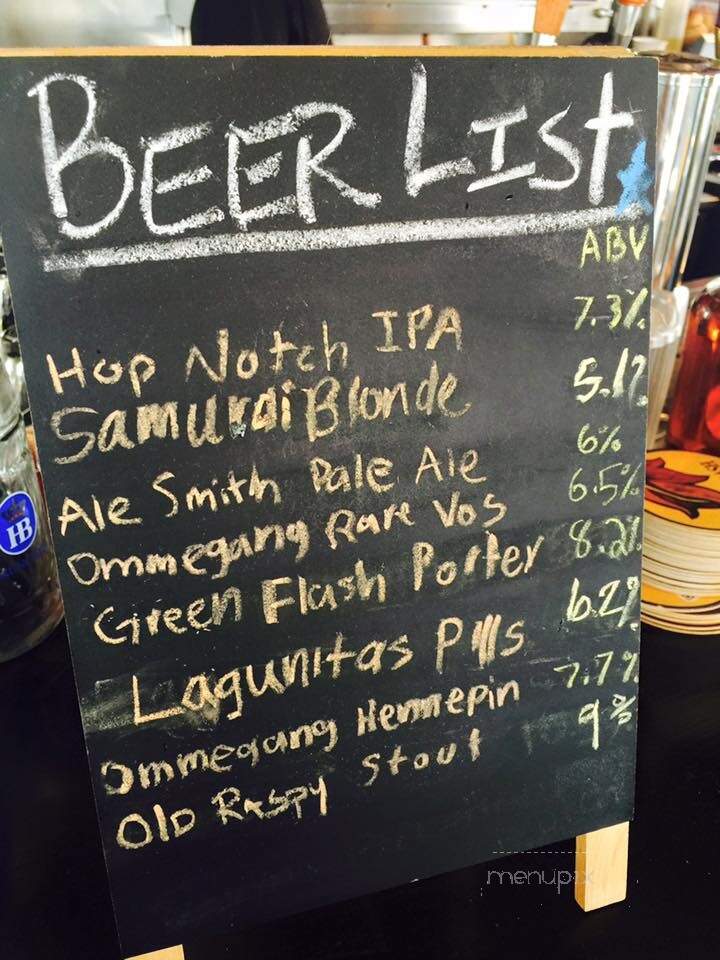 BEER LIST
ABV
Hop Notch IPA 7.3%
Samurai Blonde 5.1%
Ale Smith Pale Ale 6%
Ommegang Rare Vos 6.5%
Green Flash Porter 8.2%
Lagunitas Pills 6.2%
Ommegang Hennepin 7.7%
Old Raspy Stout 9%
HB
menupix